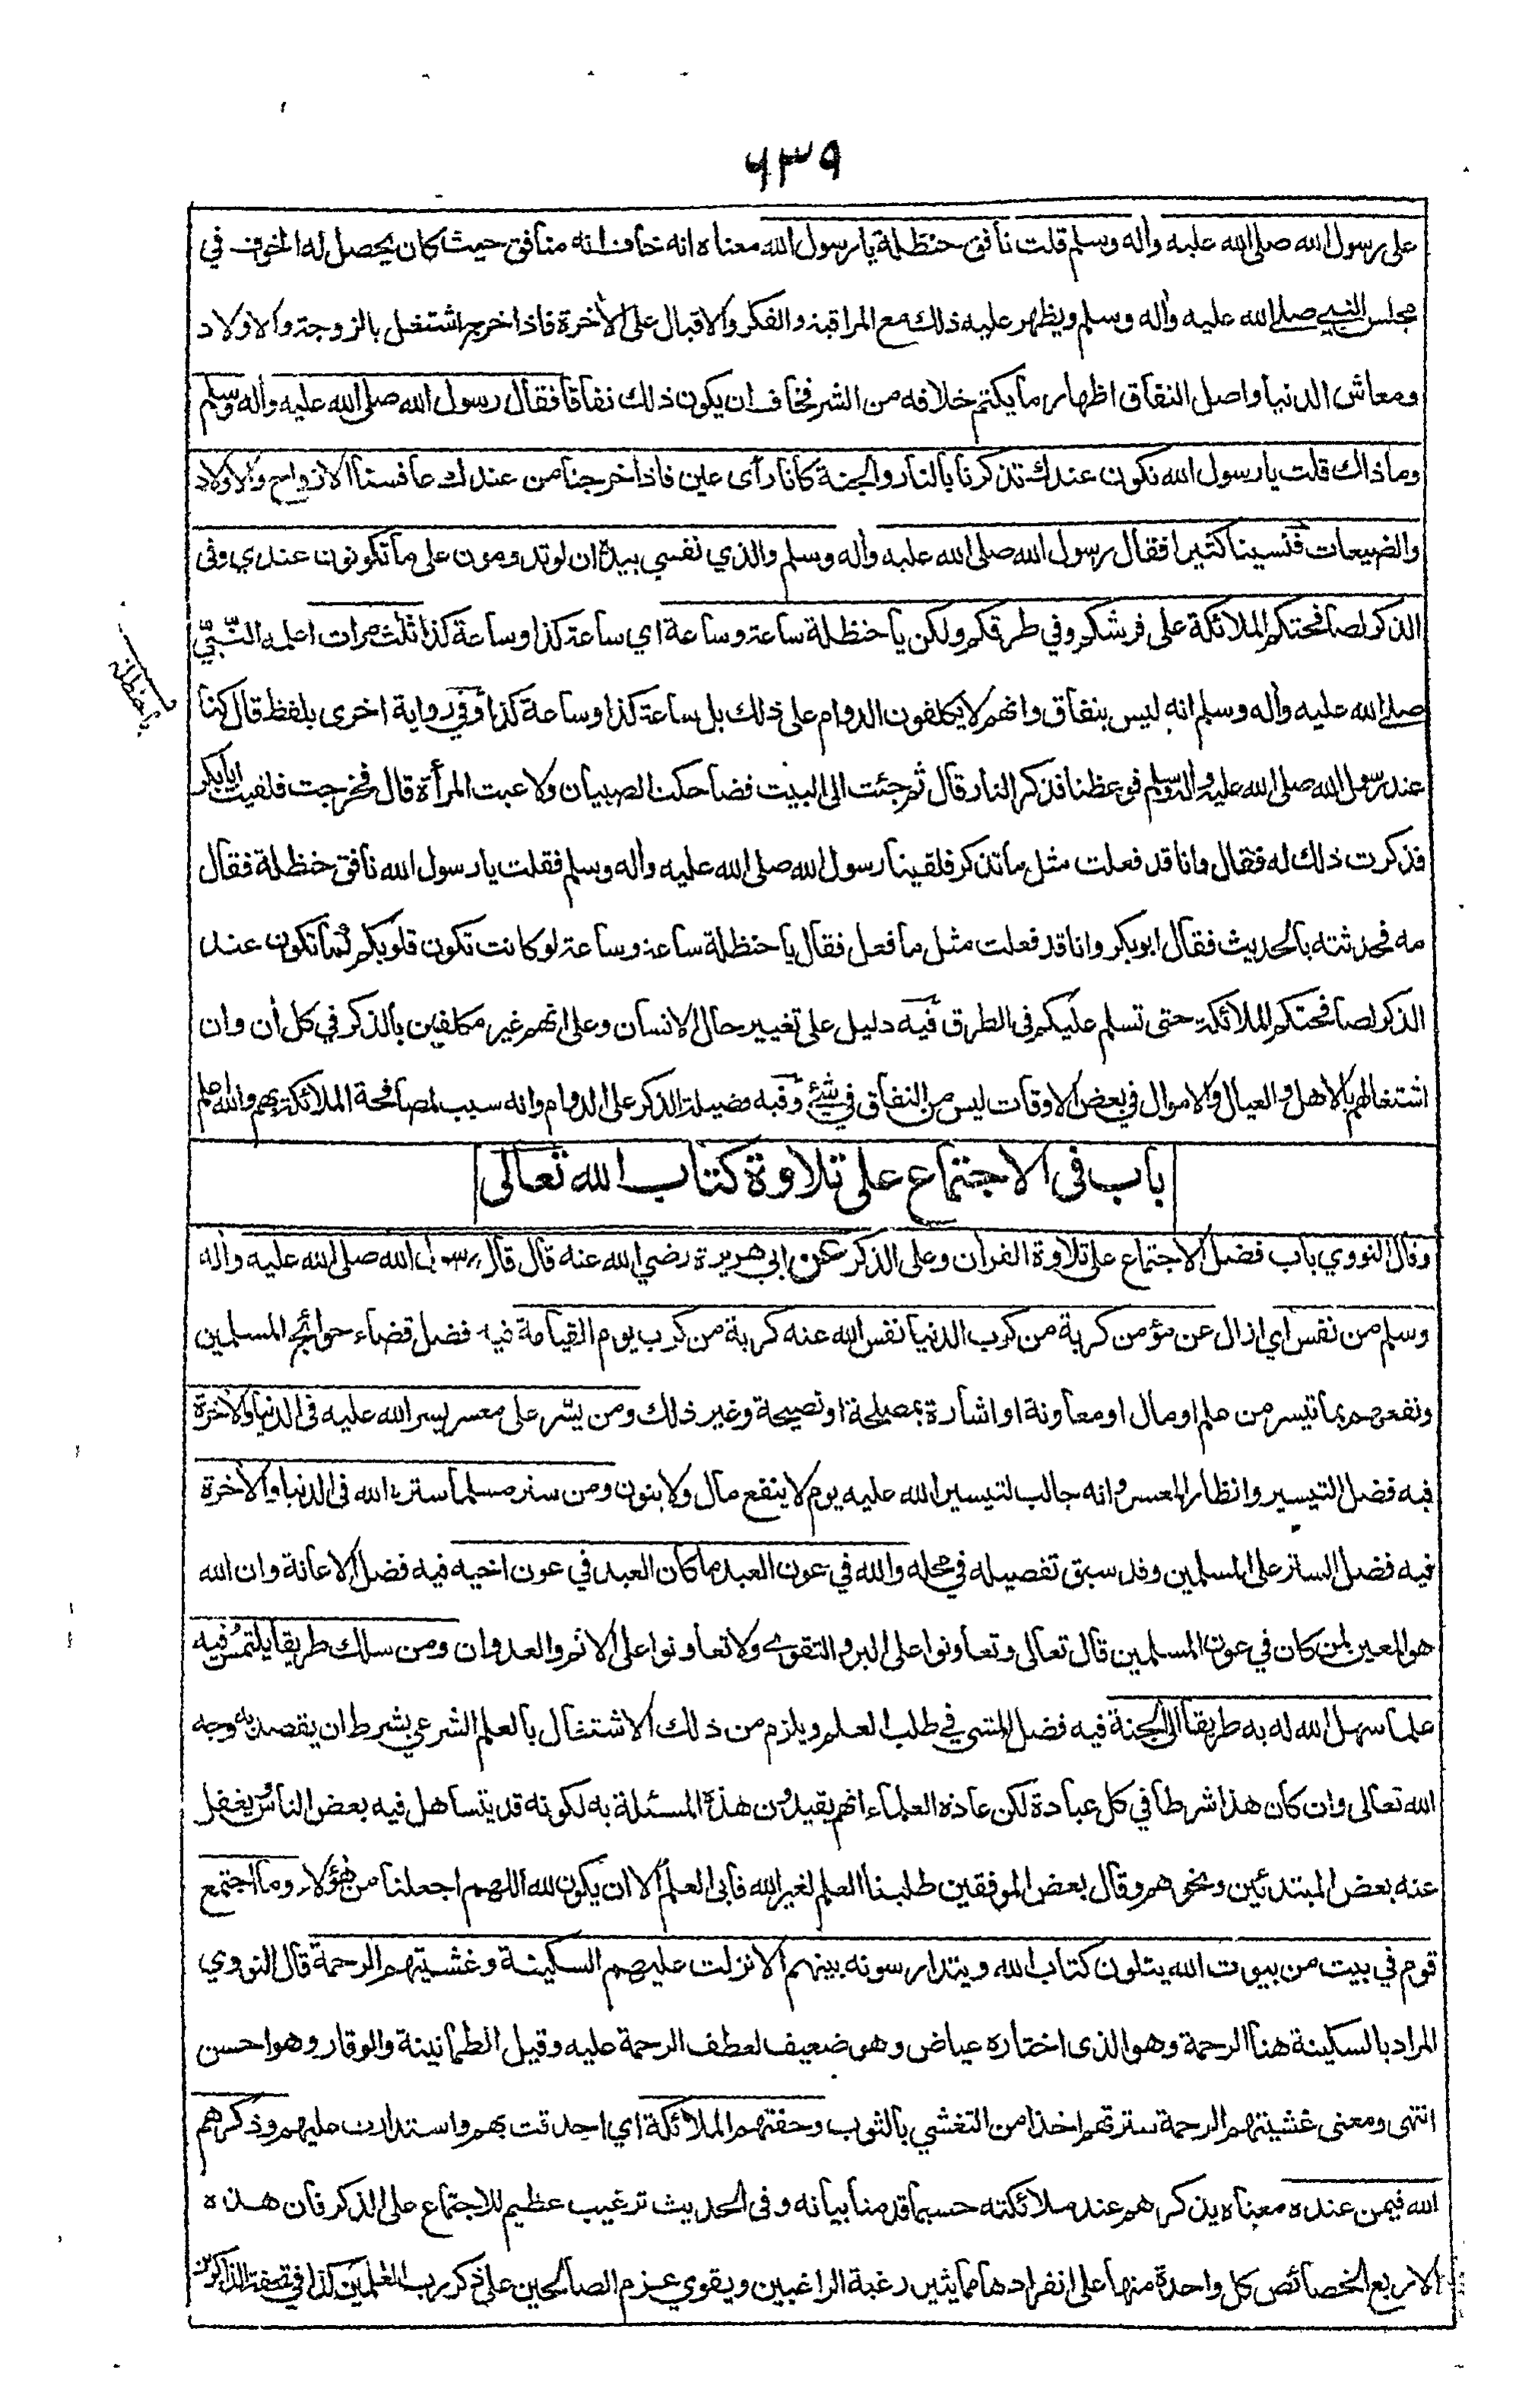 ٦٣٩
على رسول الله صلى الله عليه وأله وسلم قلت نافق حنظلة يا رسول الله معناه انه خاف انه منافق حيث كان يحصل له الخوف في
مجلس النبي صلى الله عليه وأله وسلم ويظهر عليه ذلك مع المراقبة والفكر والاقبال على الأخرة فاذا خرج اشتغل بالزوجة والاولاد
ومعاش الدنيا واصل النفاق اظهار ما يكتم خلافه من الشر فخاف ان يكون ذلك نفاقا فقال رسول الله صلى الله عليه وأله وسلم
وما ذاك قلت يا رسول الله نكون عندك تذكرنا بالنار والجنة كانا رأى عين فاذا خرجنا من عندك عافسنا الازواج والاولاد
والضيعات فنسينا كثيرا فقال رسول الله صلى الله عليه وأله وسلم والذي نفسي بيده ان لو تدومون على ما تكونون عندي وفي
الذكر لصافحتكم الملائكة على فرشكم وفي طرقكم ولكن يا حنظلة ساعة وساعة اي ساعة كذا وساعة كذا ثلث مرات اعلمه النّبيّ
صلى الله عليه وأله وسلم انه ليس بنفاق وانهم لا يكلفون الدوام على ذلك بل ساعة كذا وساعة كذا وفي رواية اخرى بلفظ قال كنا
عند رسول الله صلى الله عليه وأله وسلم فوعظنا فذكر النار قال ثم جئت الى البيت فضاحكت الصبيان ولاعبت المرأة قال فخرجت فلقيت ابا بكر
فذكرت ذلك له فقال وانا قد فعلت مثل ما تذكر فلقينا رسول الله صلى الله عليه وأله وسلم فقلت يا رسول الله نافق حنظلة فقال
مه فحدثته بالحديث فقال ابو بكر وانا قد فعلت مثل ما فعل فقال يا حنظلة ساعة وساعة لو كانت تكون قلوبكم كما تكون عند
الذكر لصافحتكم الملائكة حتى تسلم عليكم في الطرق فيه دليل على تغيير حال الانسان وعلى انهم غير مكلفين بالذكر في كل أن وان
اشتغالهم بالاهل والعيال والاموال في بعض الاوقات ليس من النفاق في شئ وفيه فضيلة الذكر على الدوام وانه سبب لمصافحة الملائكة بهم والله اعلم
باب في الاجتماع على تلاوة كتاب الله تعالى
وقال النووي باب فضل الاجتماع على تلاوة القرأن وعلى الذكر عن ابي هريرة رضي الله عنه قال قال رسول الله صلى الله عليه وأله
وسلم من نفس اي ازال عن مؤمن كربة من كرب الدنيا نفس الله عنه كربة من كرب يوم القيامة فيه فضل قضاء حوائج المسلمين
ونفعهم بما تيسر من علم او مال او معاونة او اشارة بمصلحة او نصيحة وغير ذلك ومن يسّر على معسر يسر الله عليه في الدنيا والأخرة
فيه فضل التيسير وانظار المعسر وانه جالب لتيسير الله عليه يوم لا ينفع مال ولا بنون ومن ستر مسلما ستره الله في الدنيا والأخرة
فيه فضل الستر على المسلمين وقد سبق تفصيله في محله والله في عون العبد ما كان العبد في عون اخيه فيه فضل الاعانة وان الله
هو المعين لمن كان في عون المسلمين قال تعالى وتعاونوا على البر والتقوى ولا تعاونوا على الاثم والعدوان ومن سلك طريقا يلتمس فيه
علما سهل الله له به طريقا الى الجنة فيه فضل المشي في طلب العلم ويلزم من ذلك الاشتغال بالعلم الشرعي بشرط ان يقصد به وجه
الله تعالى وان كان هذا شرطا في كل عبادة لكن عادة العلماء انهم يقيدون هذه المسئلة به لكونه قد يتساهل فيه بعض الناس يغفل
عنه بعض المبتدئين ونحوهم وقال بعض الموفقين طلبنا العلم لغير الله فابى العلم الا ان يكون لله اللهم اجعلنا من هؤلاء وما اجتمع
قوم في بيت من بيوت الله يتلون كتاب الله ويتدارسونه بينهم الا نزلت عليهم السكينة وغشيتهم الرحمة قال النووي
المراد بالسكينة هنا الرحمة وهو الذى اختاره عياض وهو ضعيف لعطف الرحمة عليه وقيل الطمانينة والوقار وهو احسن
انتهى ومعنى غشيتهم الرحمة سترتهم اخذا من التغشي بالثوب وحفتهم الملائكة اي احدقت بهم واستدارت عليهم وذكرهم
الله فيمن عنده معناه يذكرهم عند ملائكته حسبما قدمنا بيانه وفى الحديث ترغيب عظيم للاجتماع على الذكر فان هذه
الاربع الخصائص كل واحدة منها على انفرادها مما يثير رغبة الراغبين ويقوي عزم الصالحين على ذكر رب العلمين كذا في تحفة الذاكرين
يا حنظلة